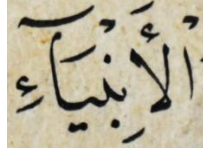 الْأَنْبِيَآءِ